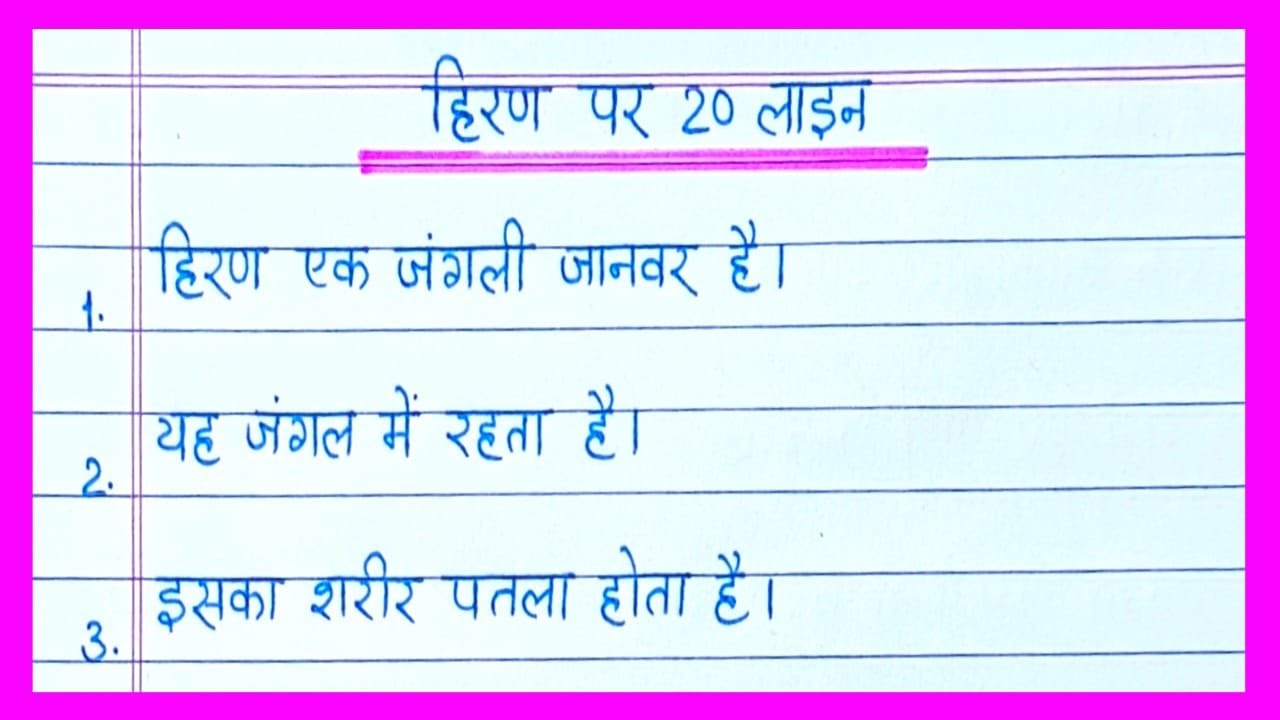 हिरण पर 20 लाइन
1. हिरण एक जंगली जानवर है।
2. यह जंगल में रहता है।
3. इसका शरीर पतला होता है।